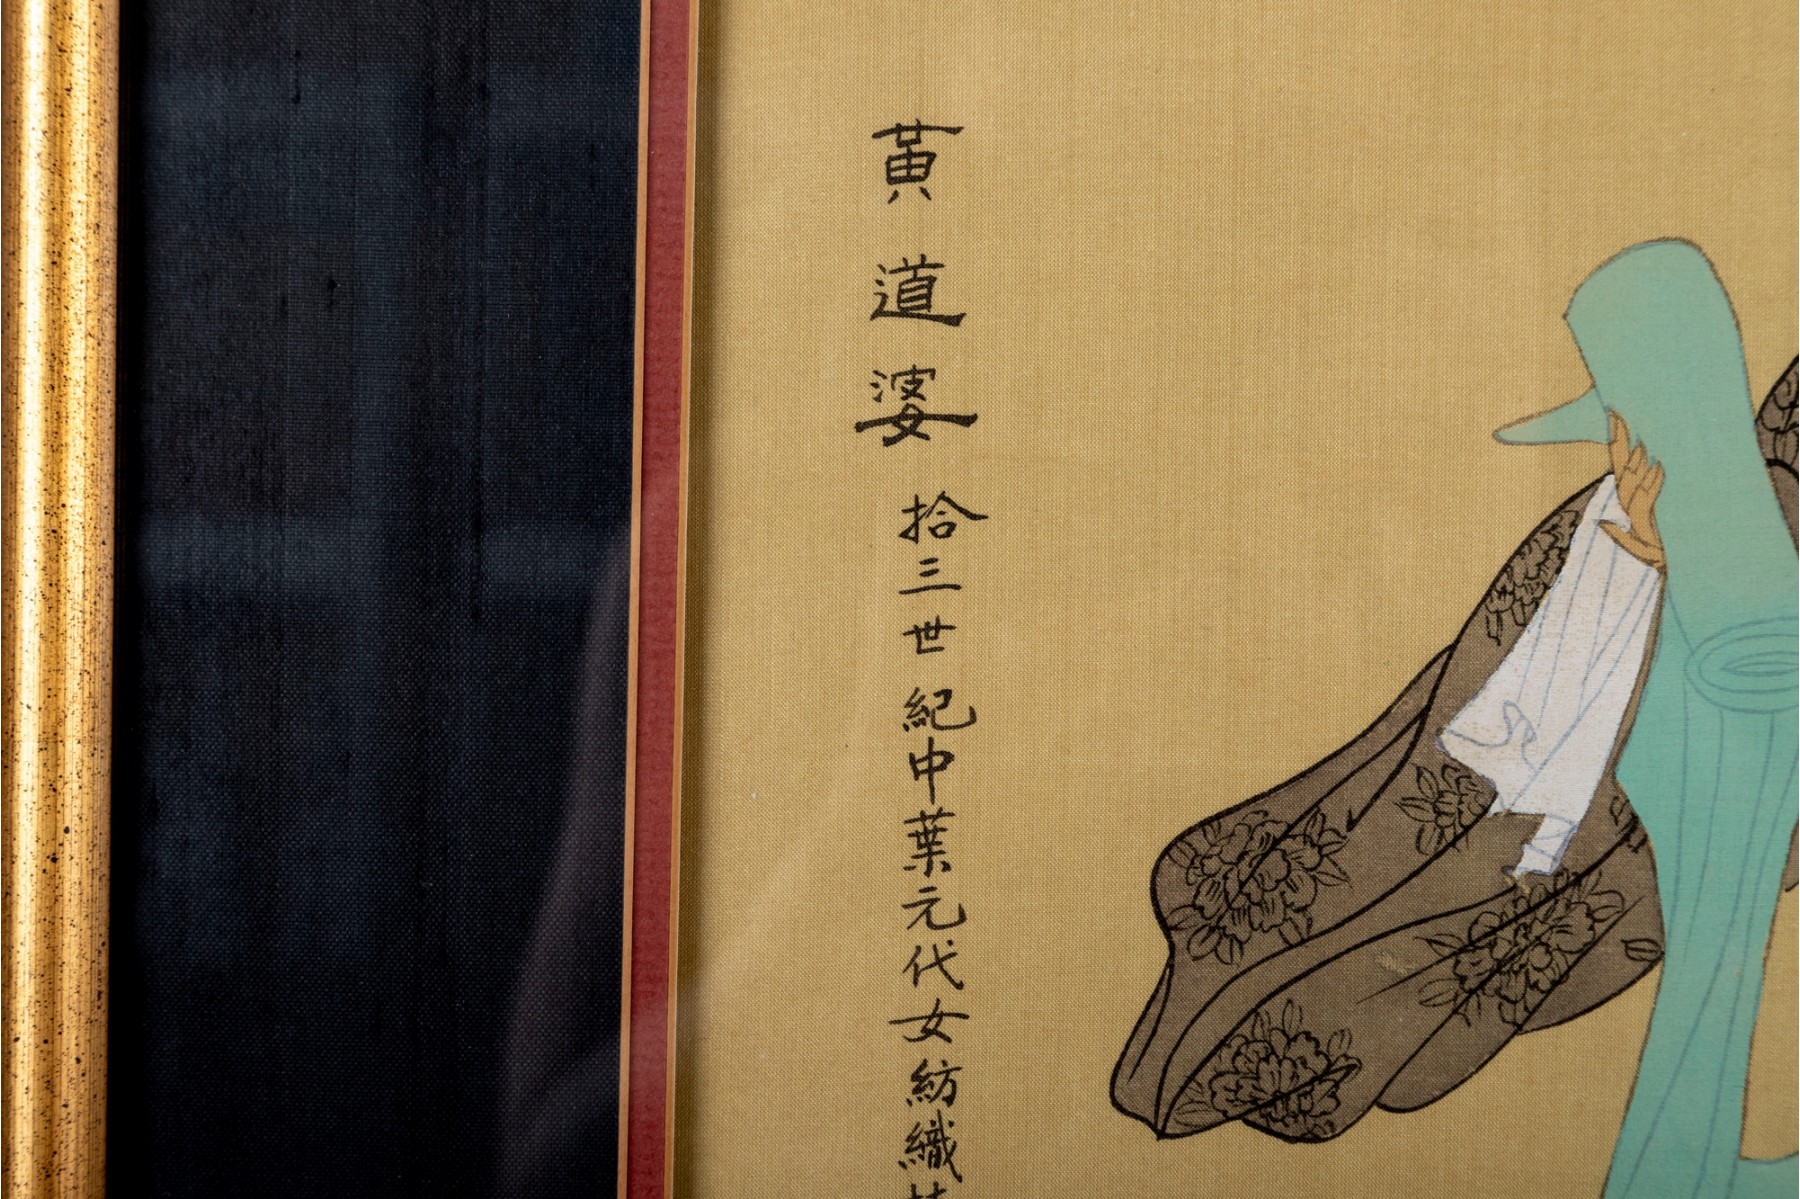 黃道婆 拾三世紀中葉元代女紡織